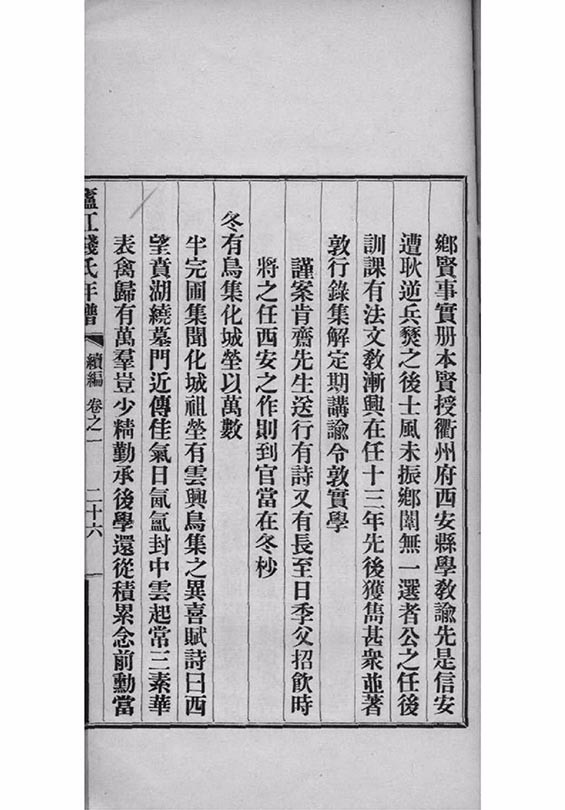 鄉賢事實册本賢授衢州府西安縣學教諭先是信安
遭耿逆兵燹之後士風未振鄉闈無一選者公之任後
訓課有法文教漸興在任十三年先後獲雋甚衆並著
敦行錄集解定期講諭令敦實學
謹案肯齋先生送行有詩又有長至日季父招飲時
將之任西安之作則到官當在冬杪
冬有鳥集化城塋以萬數
半完圃集聞化城祖塋有雲興鳥集之異喜賦詩曰西
望賁湖繞墓門近傳佳氣日氤氳封中雲起常三素華
表禽歸有萬羣豈少精勤承後學還從積累念前勳當
廬江錢氏年譜 續編 卷之一 二十六